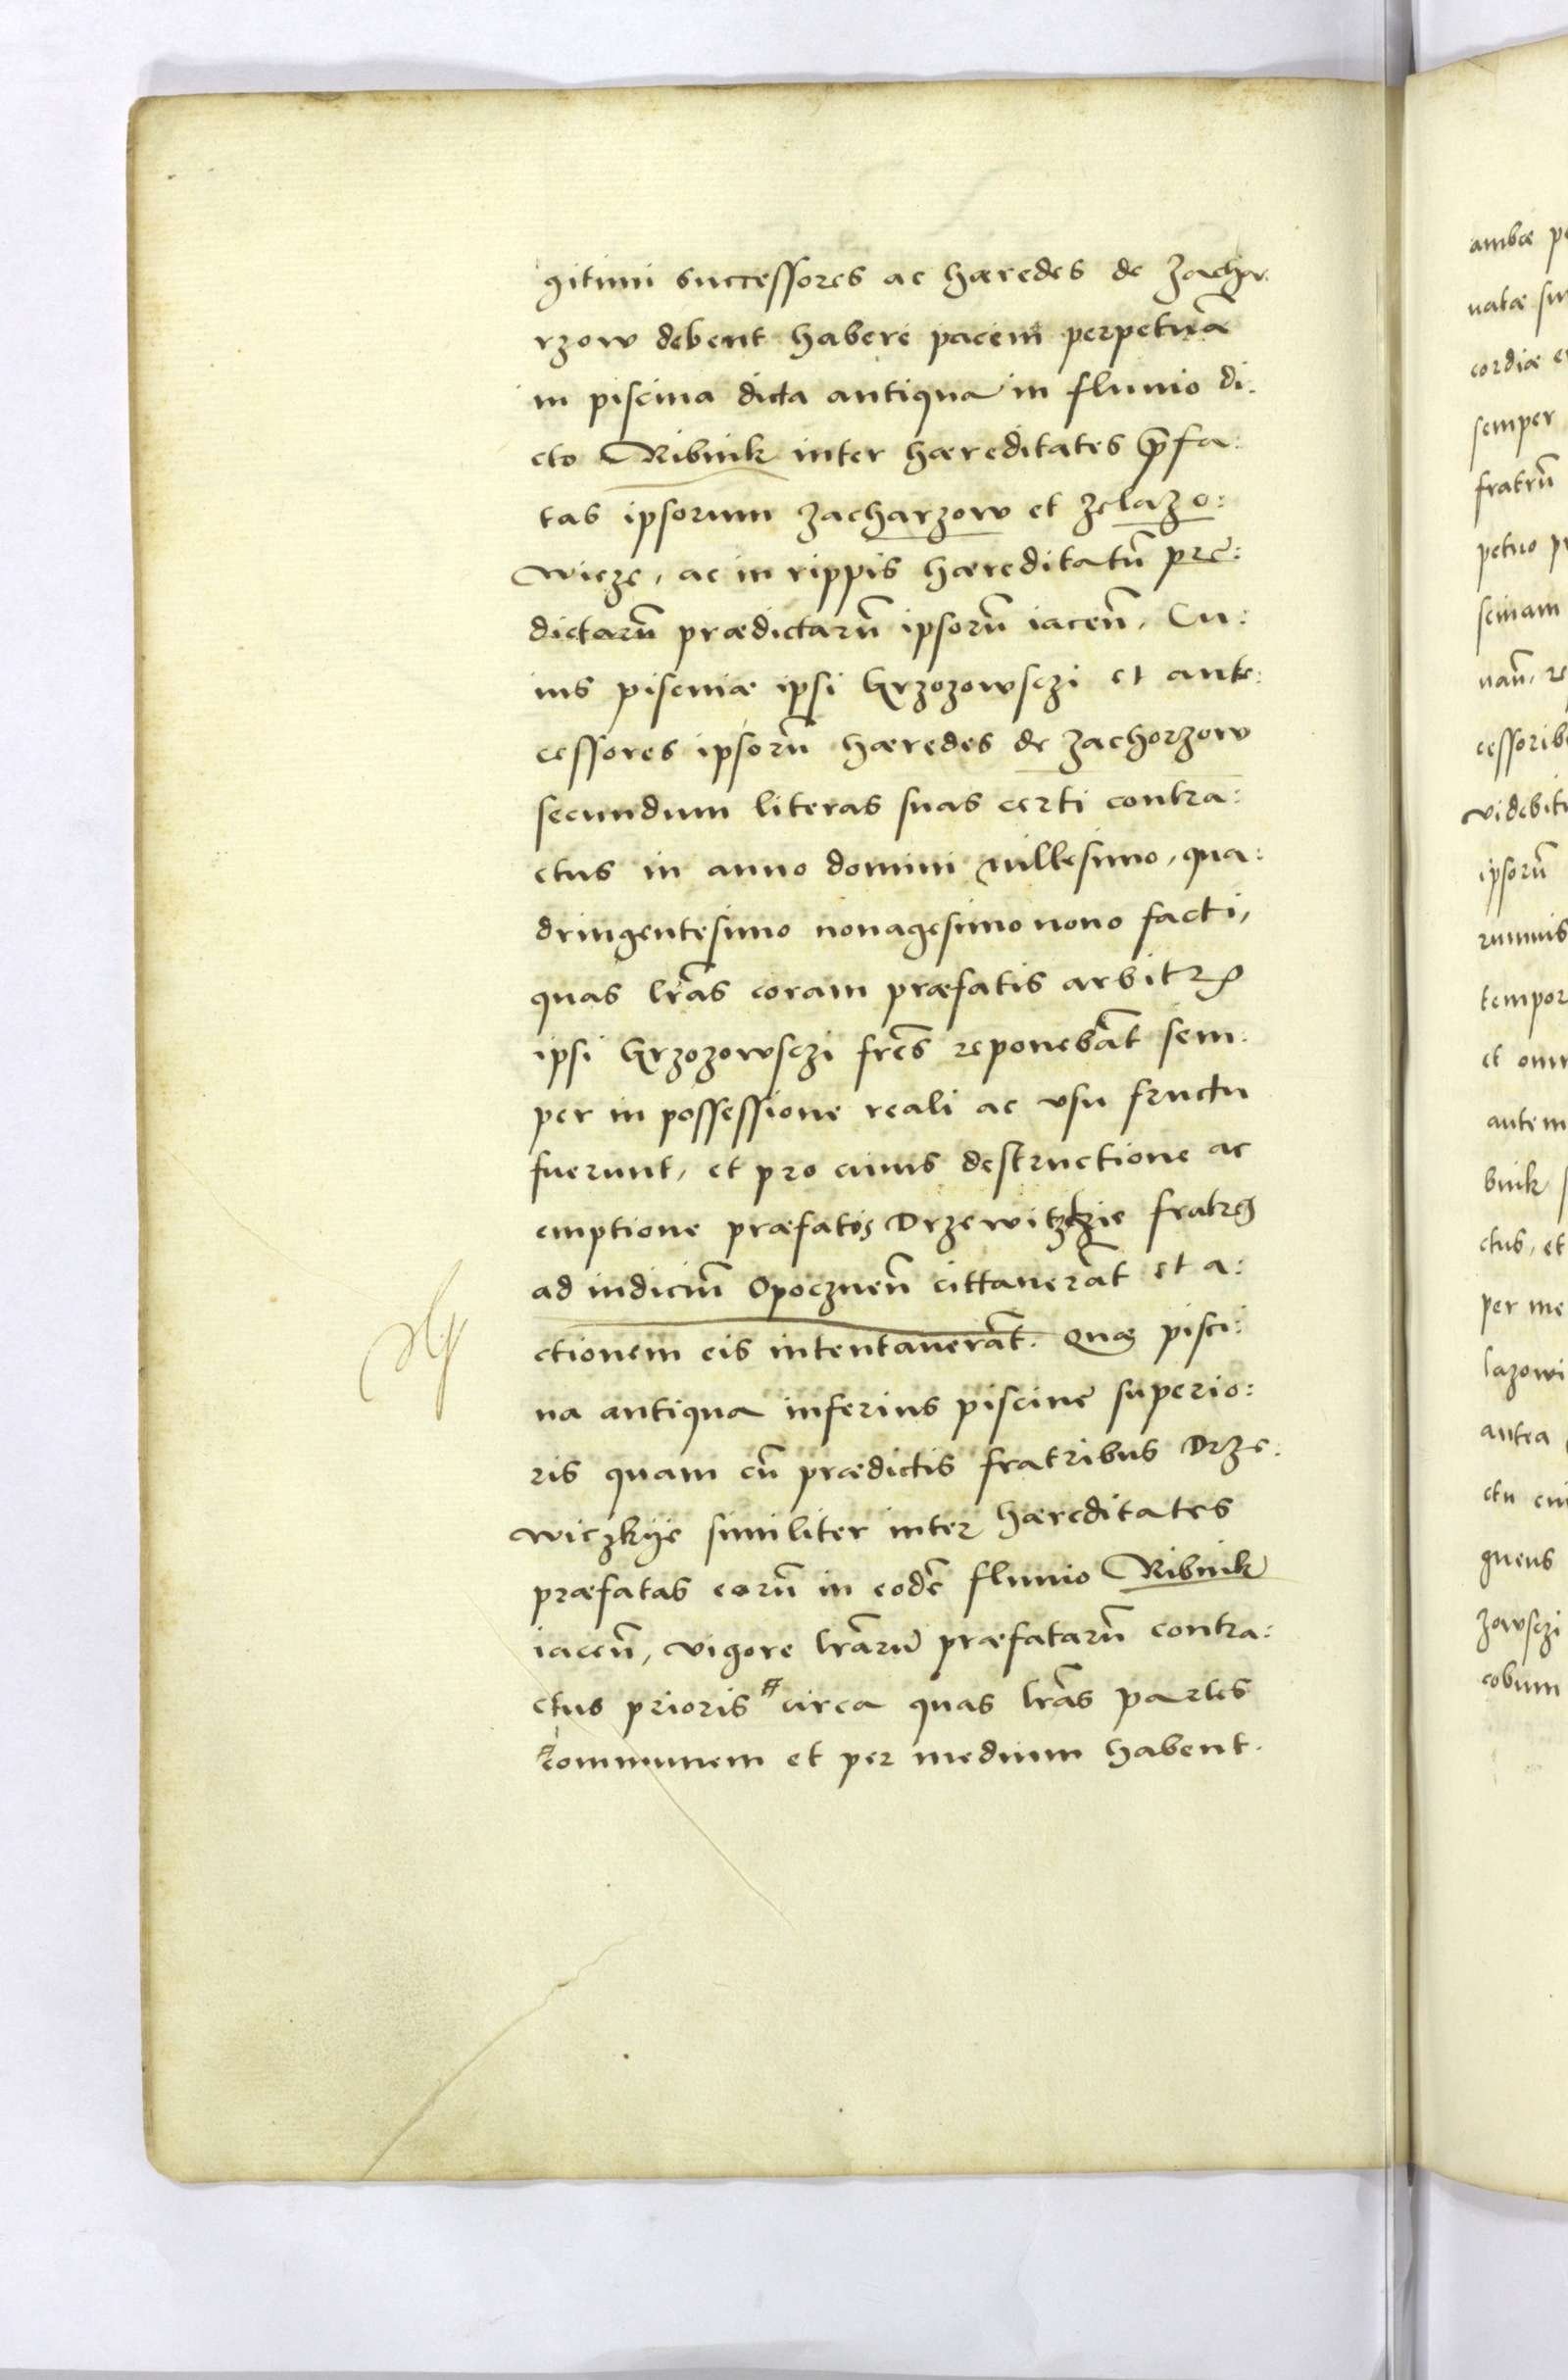 gitimi successores ac hæredes de Zacha:
rzow debent habere pacem perpetuã
in piscina dicta antiqua in fluuio di:
cto Ribnik inter hæreditates p̃fa:
tas ipsorum Zacharzow et Zelazo:
wicze, ac in rippis hæreditatũ pre:
dictarũ prædictarũ ipsorũ iaceñ, Cu:
ius pisciniæ ipsi Grzozowsczi et ante:
cessores ipsorũ hæredes de Zachorzow
secundum literas suas certi contra:
ctus in anno domini millesimo, qua:
dringentesimo nonagesimo nono facti,
quas lr̃as coram præfatis arbitr
ipsi Grzozowsczi fr̃es reponebãt sem:
per in possessione reali ac vsu fructu
fuerunt, et pro cuius destructione ac
emptione præfatos Drzewitzkie fratres
ad iudiciũ Opocznеñ cittauerãt et a:
ctionem eis intentauerãt. Quæ pisci:
na antiqua inferius piscine superio:
ris quam cũ prædictis fratribus Drze:
wiczkije similiter inter hæreditates
præfatas eorũ in eodẽ fluuio Ribnik
iaceñ, vigore lr̃arũ præfatarũ contra:
ctus prioris circa quas lr̃as partes
communem et per medium habent.
ambæ pe
natæ su
cordiæ e
semper
fratrũ
petuo p
scinam
nañ, re
cessorib
videbitu
ipsorũ
rumuis
tempor
et omn
autem
bnik
ctus, et
per me
lazowi
antea
ctu cui
gneus
zowsczi
cobum